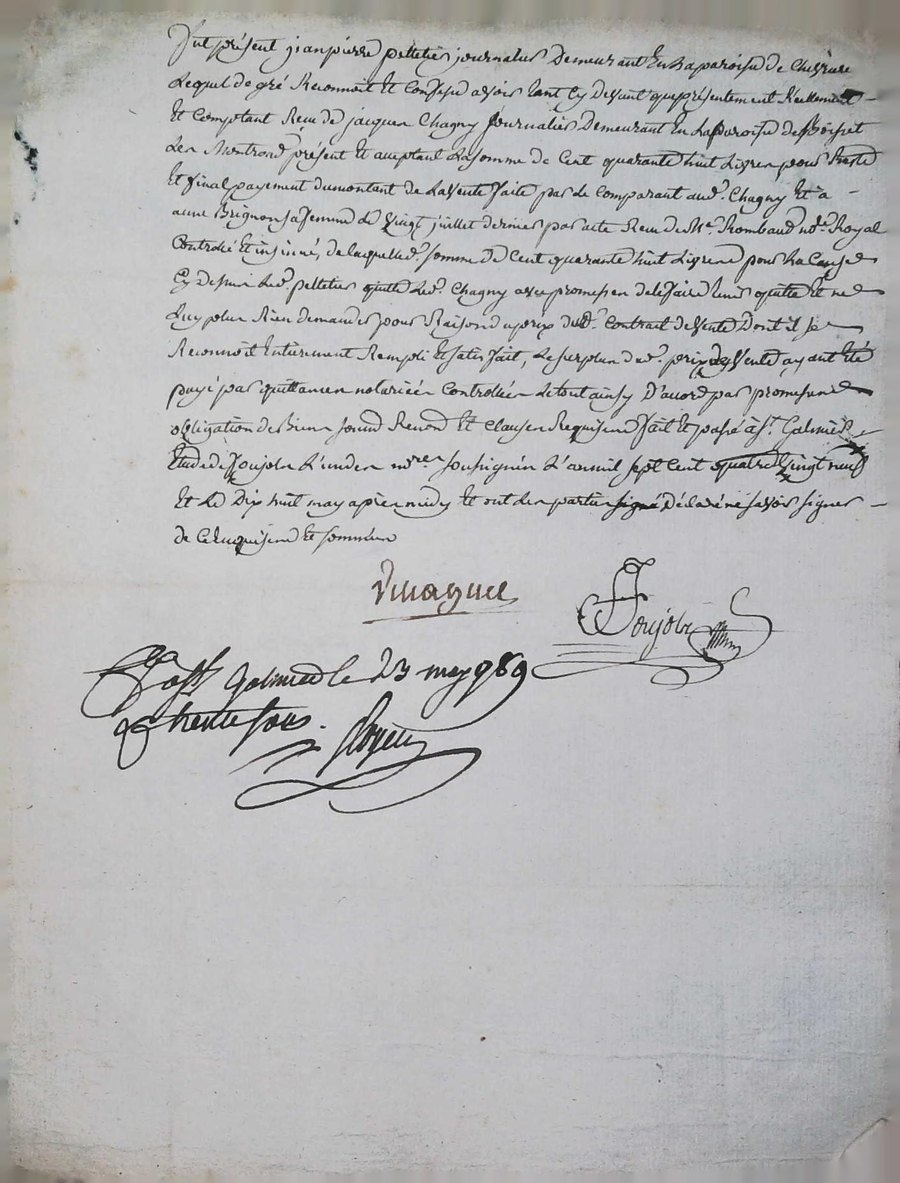 Fut présent jean pierre pelletier journalier Demeurant En la paroisse de
Lequel de gré Reconnoit Et Confesse avoir tant Cy devant que présentement Réellement
Et Comptant Recu de jacques Chagny journalier Demeurant En La paroisse de Boisset
Les Montrond présent Et aceptant La somme de Cent quarante huit Livres pour Reste
Et final payement du montant de La Vente faite par Le Comparant aud. Chagny Et à
anne Brignon sa femme Le Vingt juillet dernier par acte Recu de Me. Rombaud no.re Royal
Controlé Et insinué, de laquelle d. somme de Cent quarante huit Livres pour La Cause
Cy dessus Led. pelletier quitte Led. Chagny avec promesse de le faire tenir quitte Et ne
Luy plus Rien demander pour Raison du prix dud. Contrat de Vente Dont il se
Reconnoit Entierement Rempli Et satisfait, Le surplus dud. prix de Vente ayant Eté
payé par quittances notariées Controlées Le tout ainsy D'acord par promesses
obligation de Biens soumd Renond Et Clauses Requises fait Et passé à St. Galmier
Etude de Poujols L'un des nores soussignés L'an mil sept Cent quatre Vingt neuf
Et Le Dix huit may après midy Et ont Les parties signé Déclaré ne savoir signer
de Ce Requises Et sommées
Poujols
Galmier le 23 may 989
trente sous.